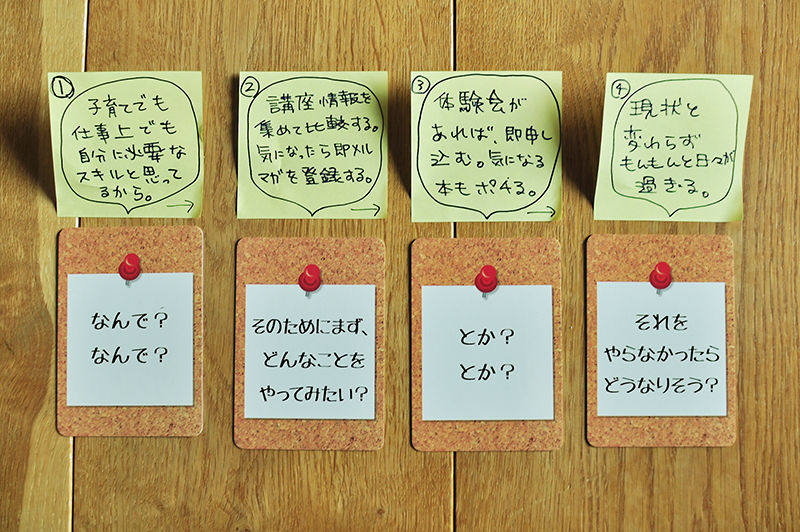 ①
子育てでも
仕事上でも
自分に必要な
スキルと思って
るから。
なんで？
なんで？
②
講座情報を
集めて比較する。
気になったら即メル
マガを登録する。
→
そのためにまず、
どんなことを
やってみたい？
③
体験会が
あれば、即申し
込む。気になる
本もポチる。
→
とか？
とか？
④
現状と
変わらず
もんもんと日々が
過ぎる。
それを
やらなかったら
どうなりそう？